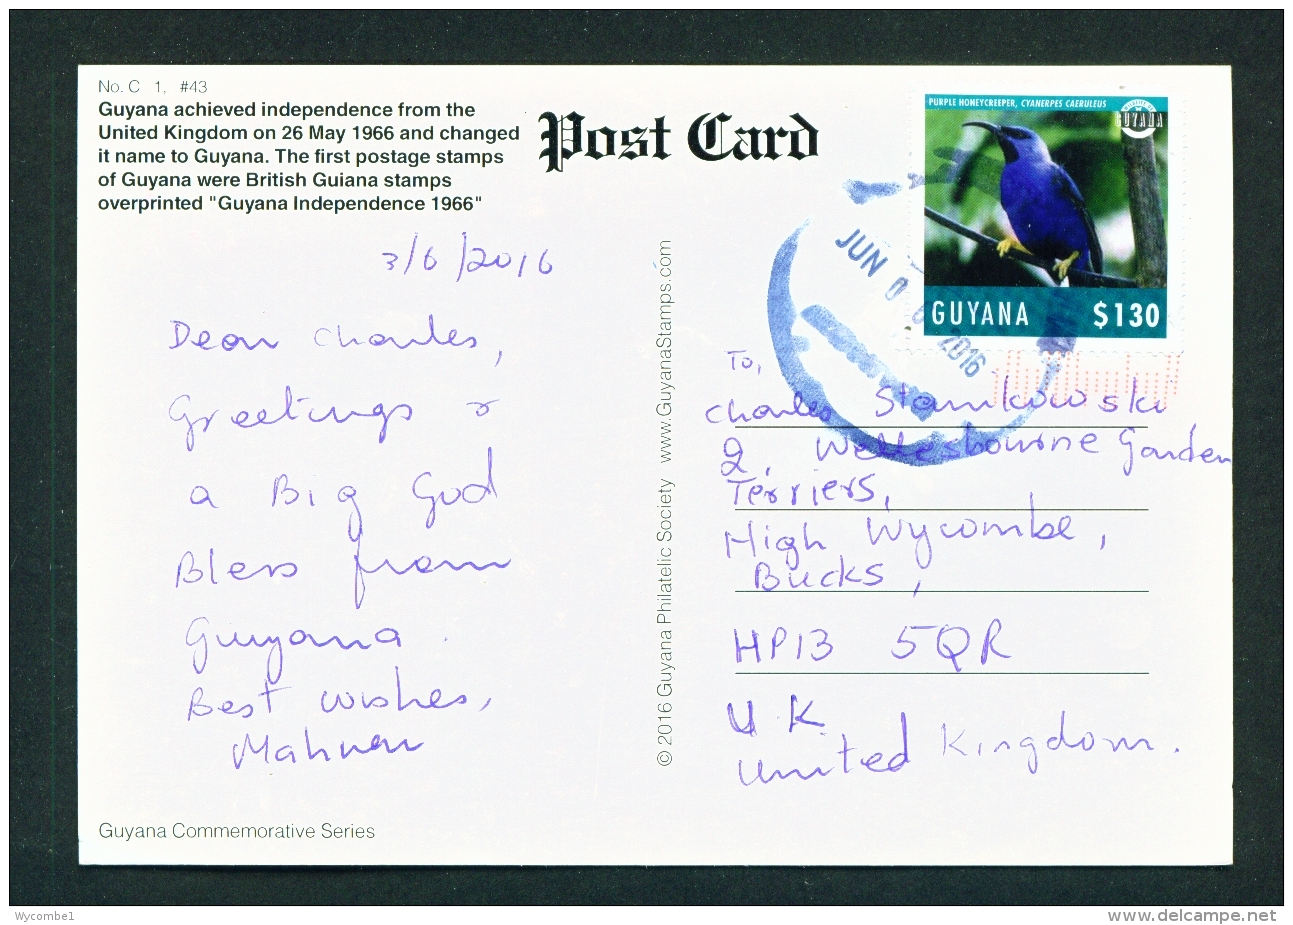 No. C 1, #43
Guyana achieved independence from the
United Kingdom on 26 May 1966 and changed
it name to Guyana. The first postage stamps
of Guyana were British Guiana stamps
overprinted "Guyana Independence 1966"
Post Card
PURPLE HONEYCREEPER, CYANERPES CAERULEUS
WILDLIFE OF
GUYANA
GUYANA $130
JUN 0 2016
3/6/2016
Dear Charles,
Greetings &
a Big God
Bless from
Guyana.
Best wishes,
© 2016 Guyana Philatelic Society www.GuyanaStamps.com
To,
Charles Stankowski
2, Wellesbourne Garden
Terriers,
High Wycombe,
Bucks,
HP13 5QR
U.K
United Kingdom.
Guyana Commemorative Series
Wycombe1
www.delcampe.net